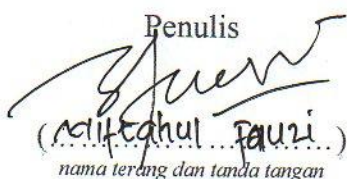 Penulis
(Miftahul Fauzi)
nama terang dan tanda tangan